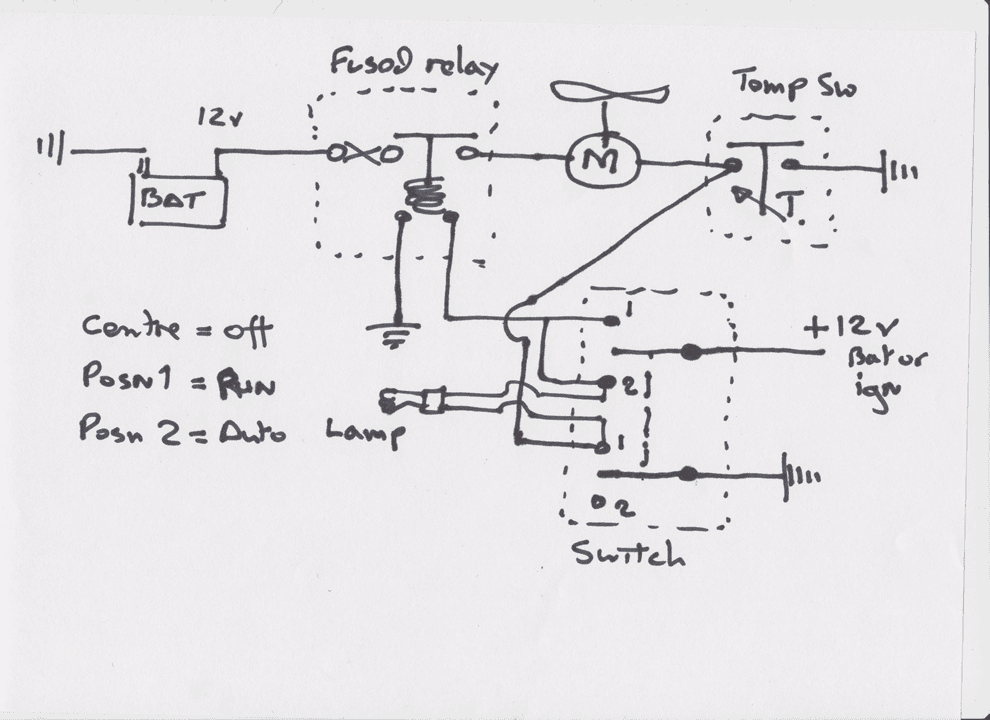 Fused relay
Temp Sw
12v
BAT
M
T.
1
+12v
Bat or
ign
Centre = off
Posn 1 = RUN
2
Posn 2 = Auto
Lamp
1
2
Switch